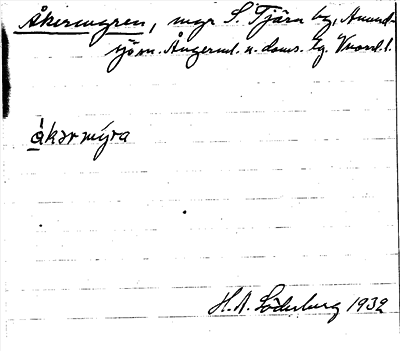 Åkermyren, myr S. Tjärn by, Anund-
sjö sn. Ångerml. n. doms. lg. Vnorrl. l.
åkərmýra
H.A. Söderberg 1932